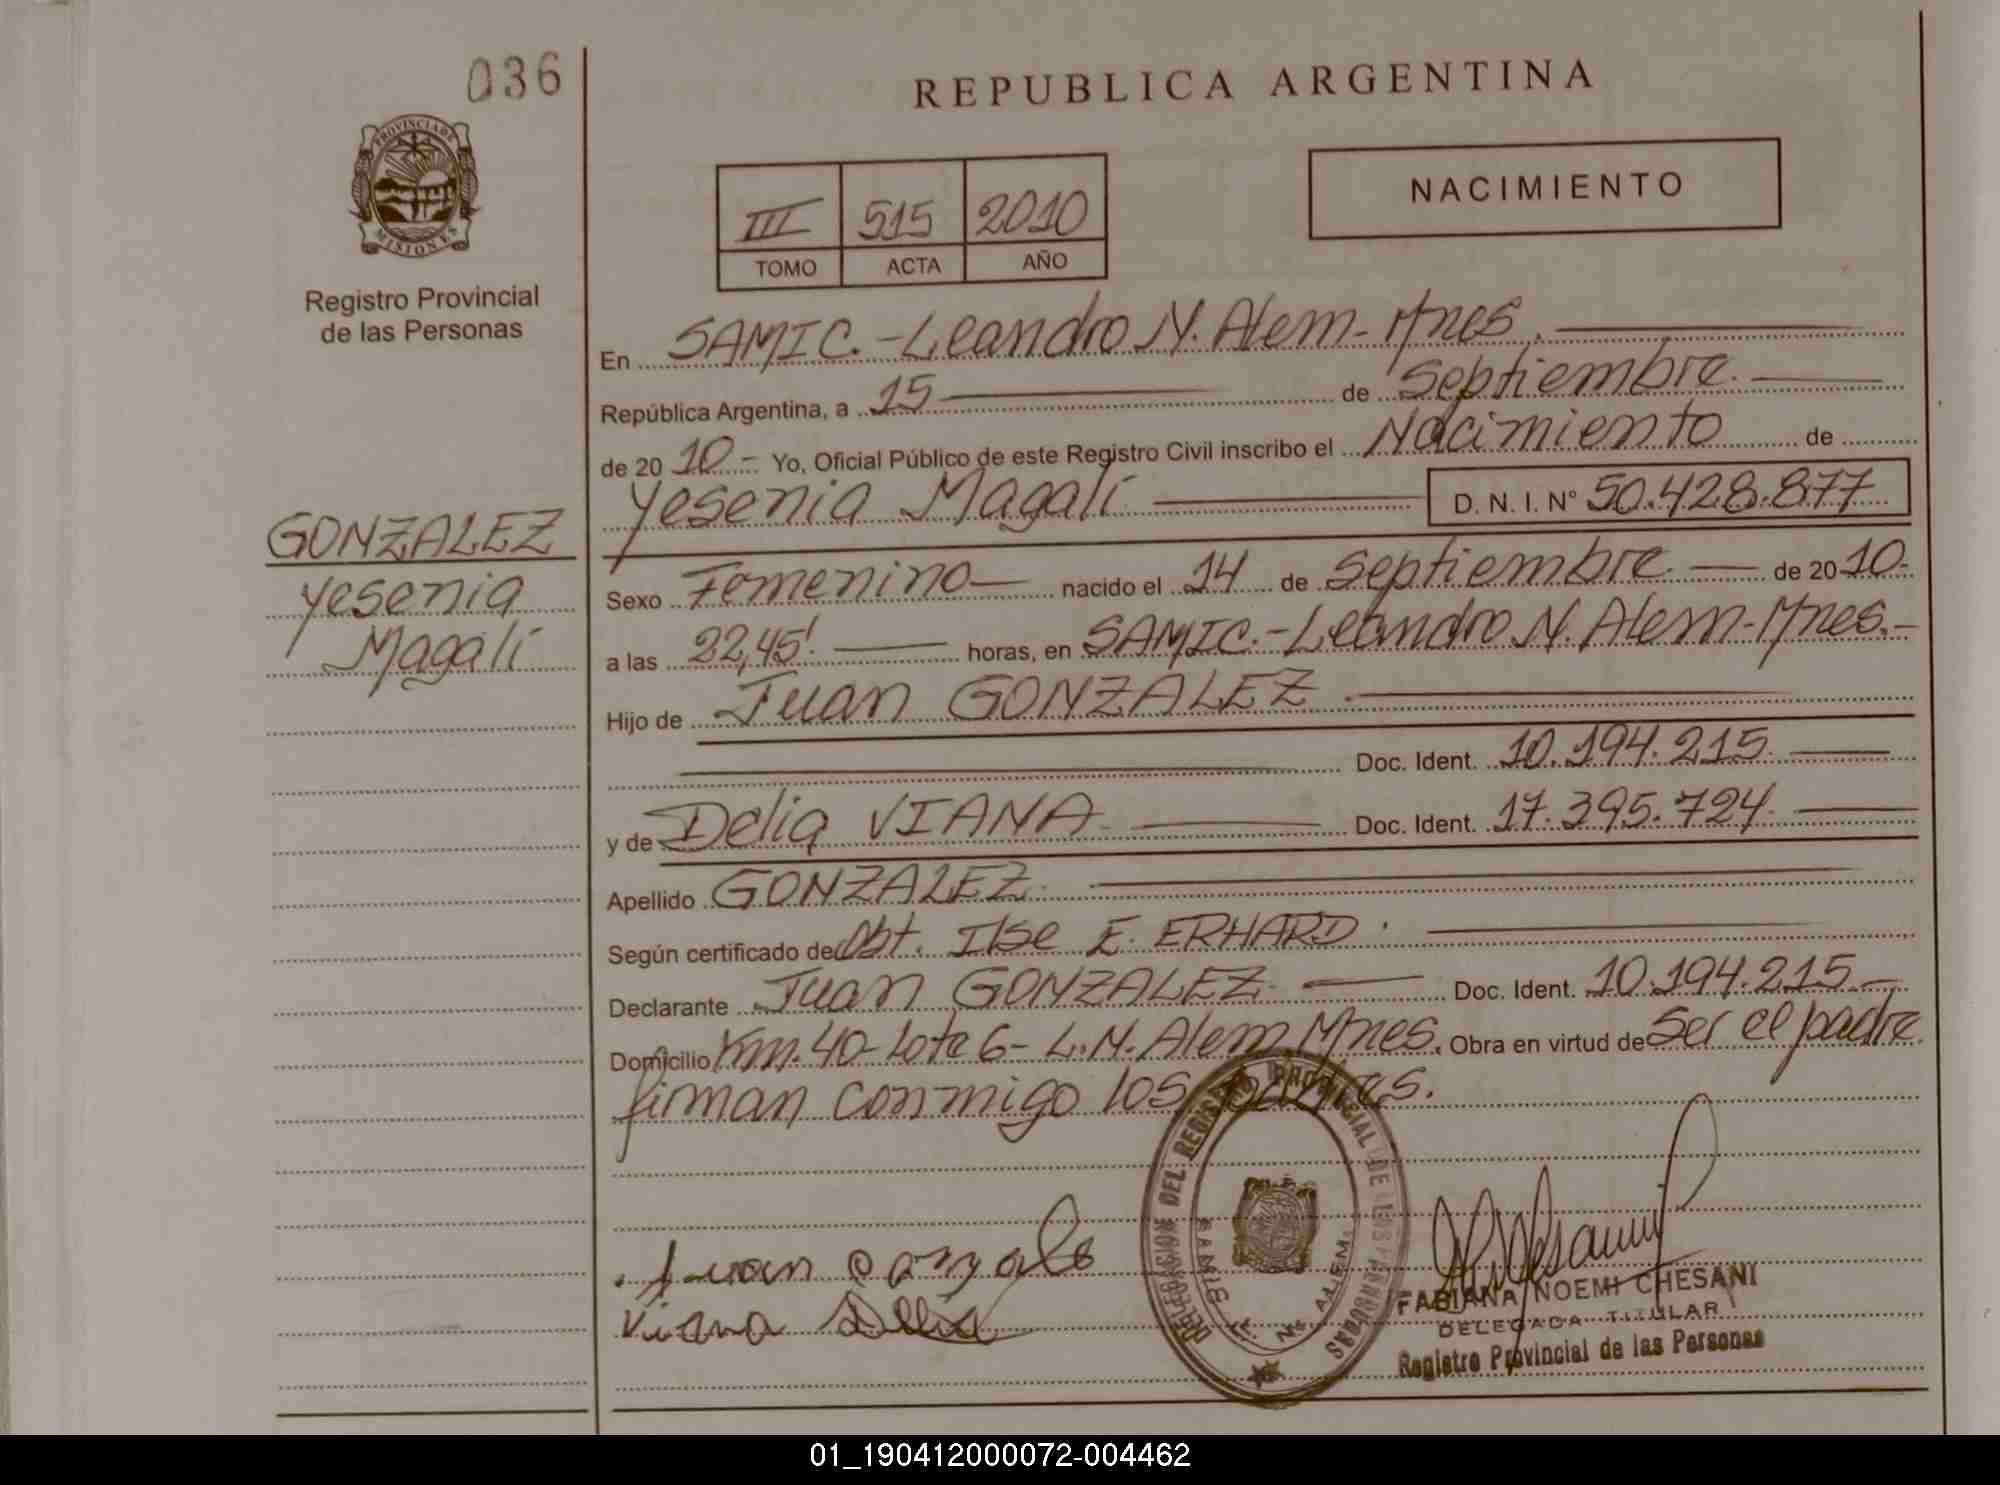 036
REPUBLICA ARGENTINA
PROVINCIA DE
MISIONES
Registro Provincial
de las Personas
III 515 2010
TOMO ACTA AÑO
NACIMIENTO
En SAMIC.-Leandro N. Alem-Mnes.
República Argentina, a 15 de Septiembre.
de 2010.- Yo, Oficial Público de este Registro Civil inscribo el Nacimiento de
Yesenia Magalí D. N. I. N° 50.428.877
GONZALEZ
Yesenia
Magalí
Sexo Femenino nacido el 14 de Septiembre. de 2010.-
a las 22,45'. horas, en SAMIC.-Leandro N. Alem-Mnes.-
Hijo de Juan GONZALEZ.
Doc. Ident. 10.194.215.
y de Delia VIANA. Doc. Ident. 17.395.724.
Apellido GONZALEZ.
Según certificado de Obt. Ilse E. ERHARD.
Declarante Juan GONZALEZ. Doc. Ident. 10.194.215.-
Domicilio Km.40-Lote 6-L.N.Alem Mnes. Obra en virtud de Ser el padre.
firman conmigo los padres.
Juan Gonzale
Viana Delia
DELEGACION DEL REGISTRO PROVINCIAL DE LAS PERSONAS
SAMIC L. N. ALEM
FABIANA NOEMI CHESANI
DELEGADA TITULAR
Registro Provincial de las Personas
01_190412000072-004462